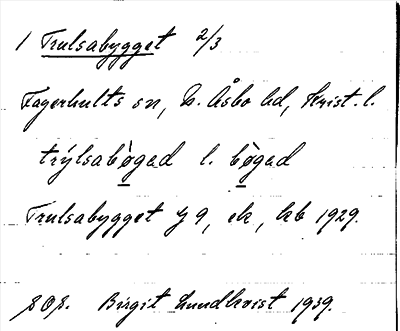 1 Trulsabygget 2/3
Fagerhults sn, N. Åsbo hd, Krist. l.
trýlsabògad l. bògad
Trulsabygget J 9, ek, kb 1929.
Birgit Lundkvist 1939.